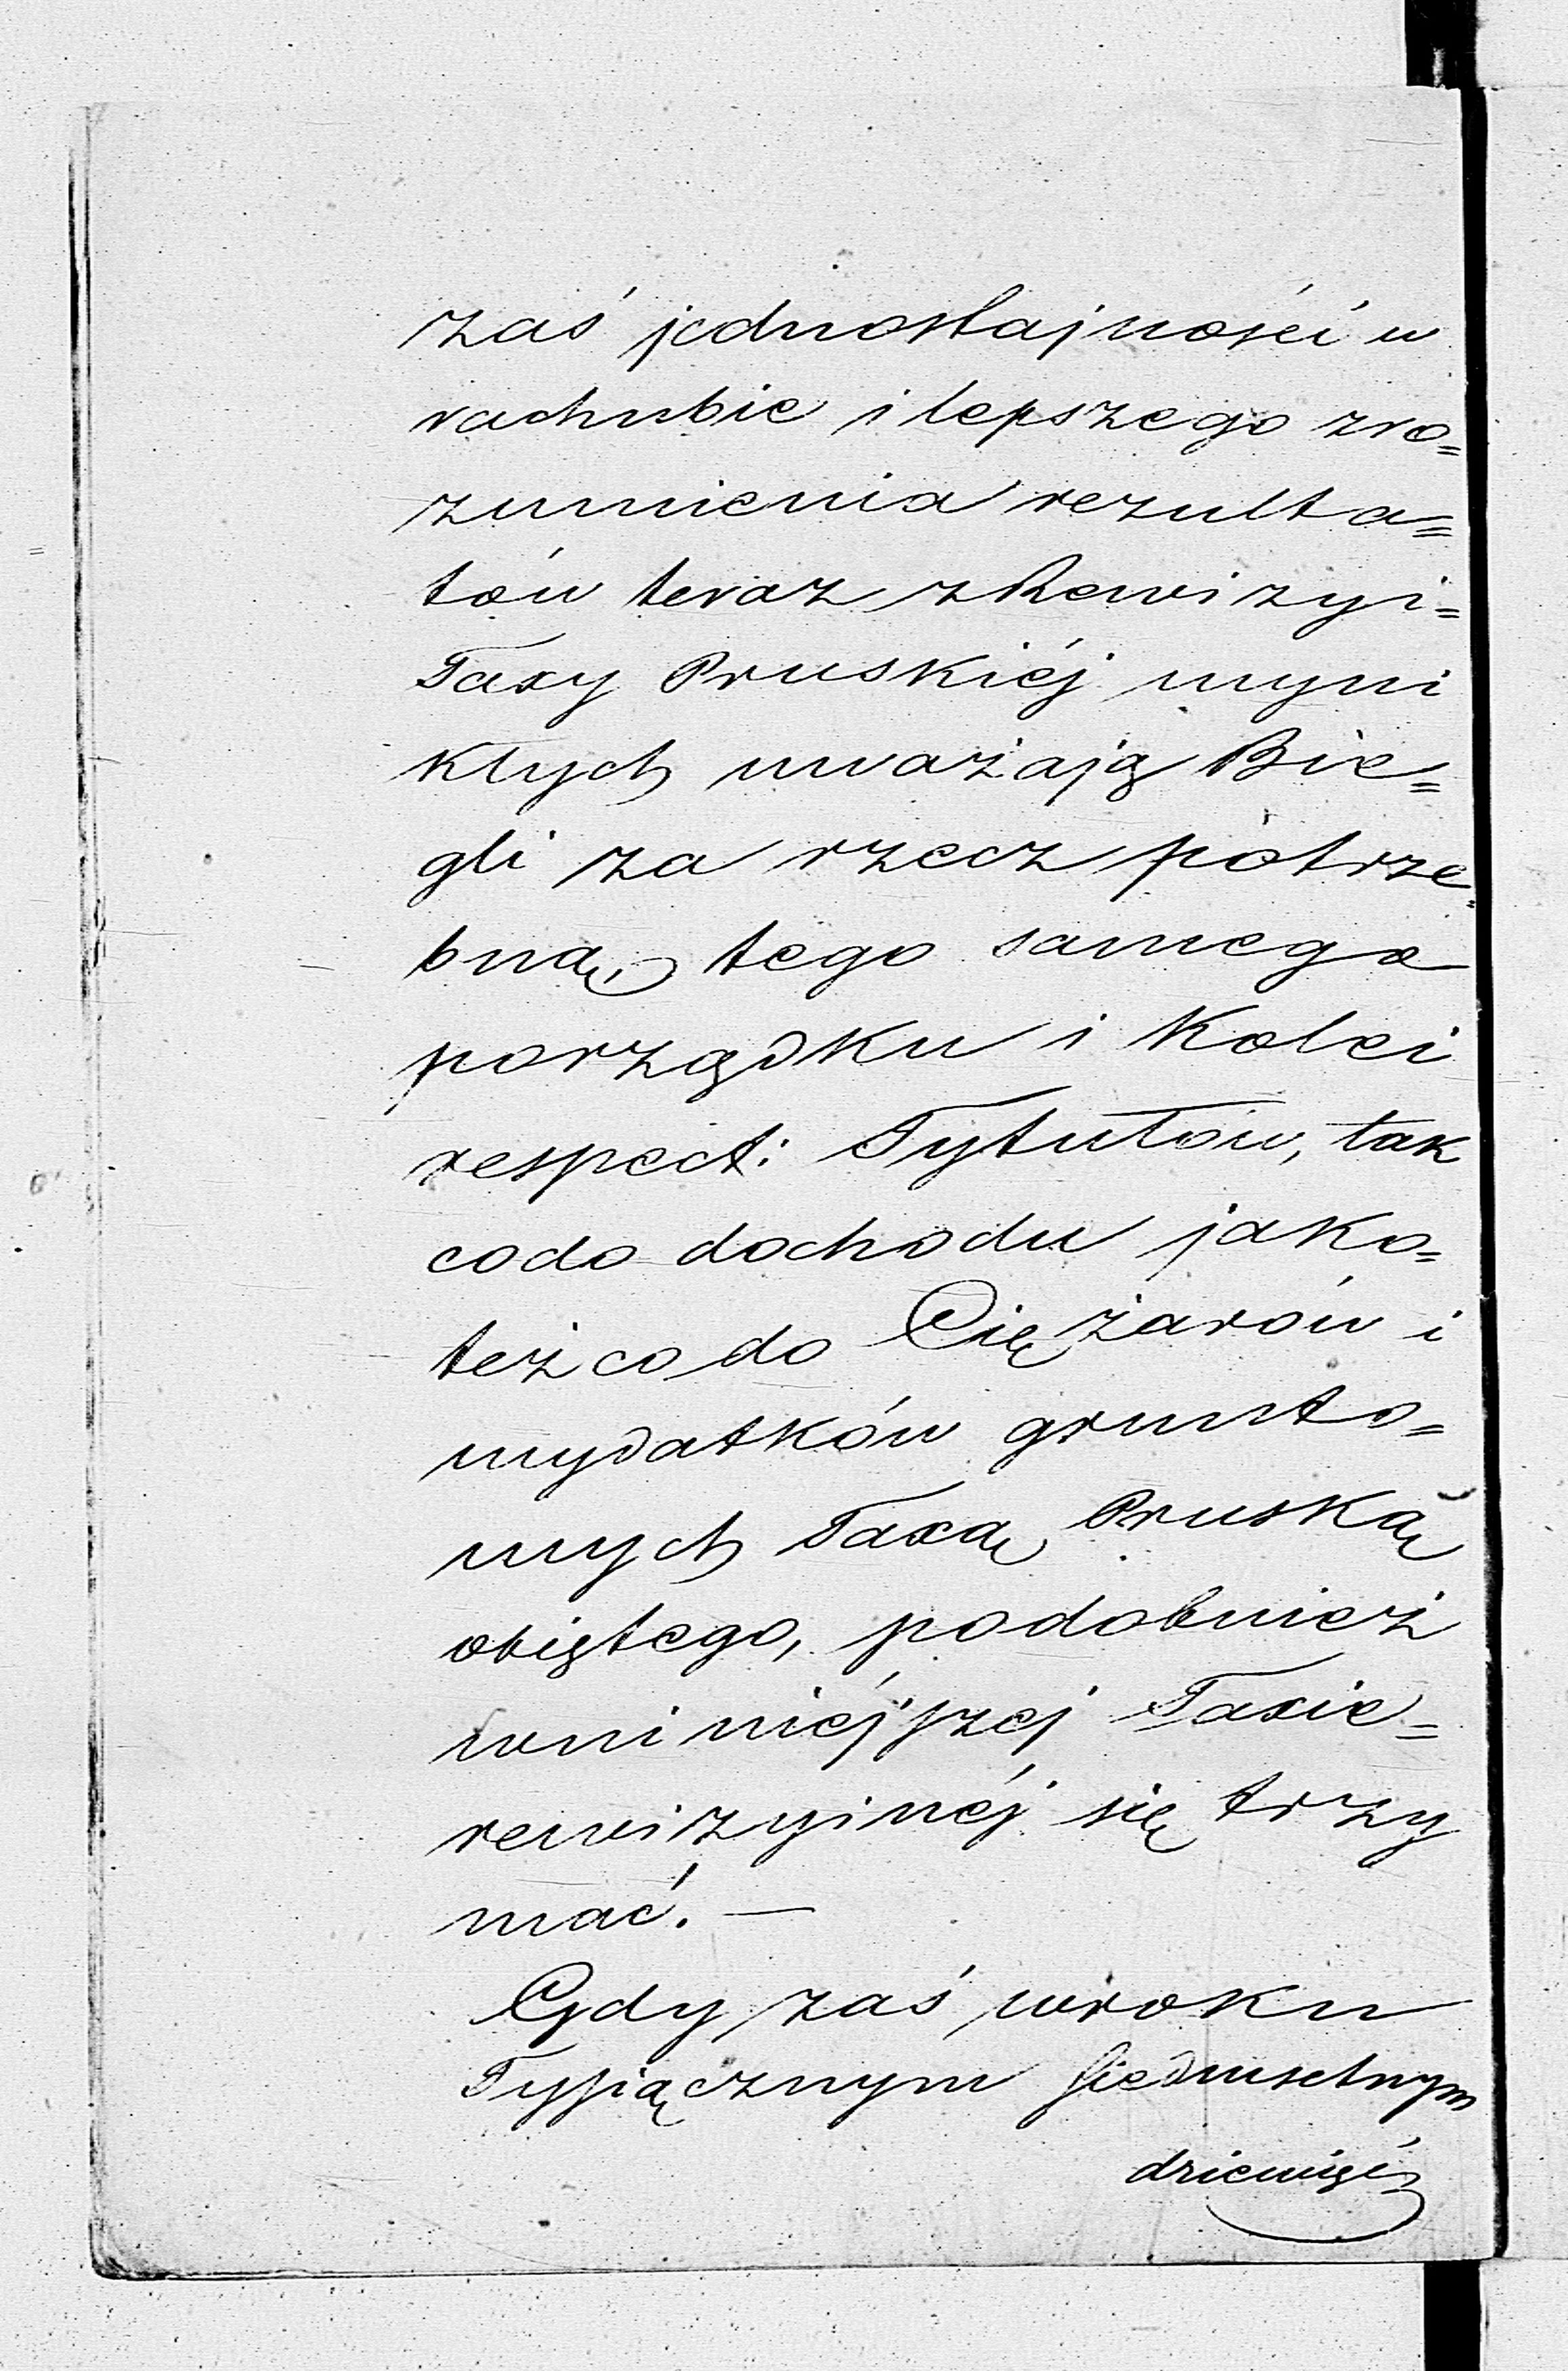 zaś jednostajności w
rachubie i lepszego zro=
zumienia rezulta=
tów teraz z Rewizyi=
Taxy Pruskiéj wyni
kłych uważają Bie=
gli za rzecz potrze=
bną, tego samego
porządku i Kolei
respect: Tytułów, tak
co do dochodu jako=
też co do Ciężarów i
wydatków grunto=
wych Taxą Pruską
obiętego, podobnież
w niniéjszej Taxie=
rewizyinéj się trzy
mać. —
Gdy zaś w roku
Tysiącznym siedmsetnym
dziewięć